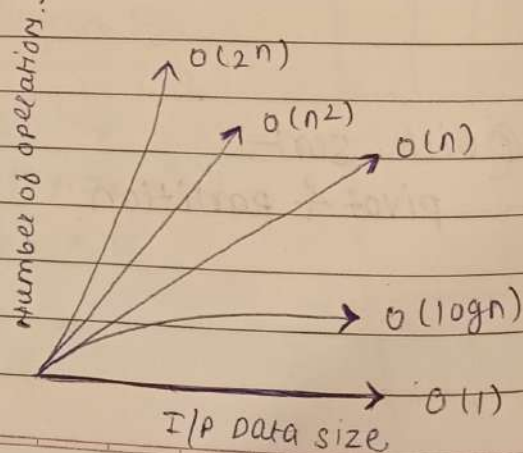 Number of operation..
O(2n)
O(n2)
O(n)
O(logn)
O(1)
I/P Data size